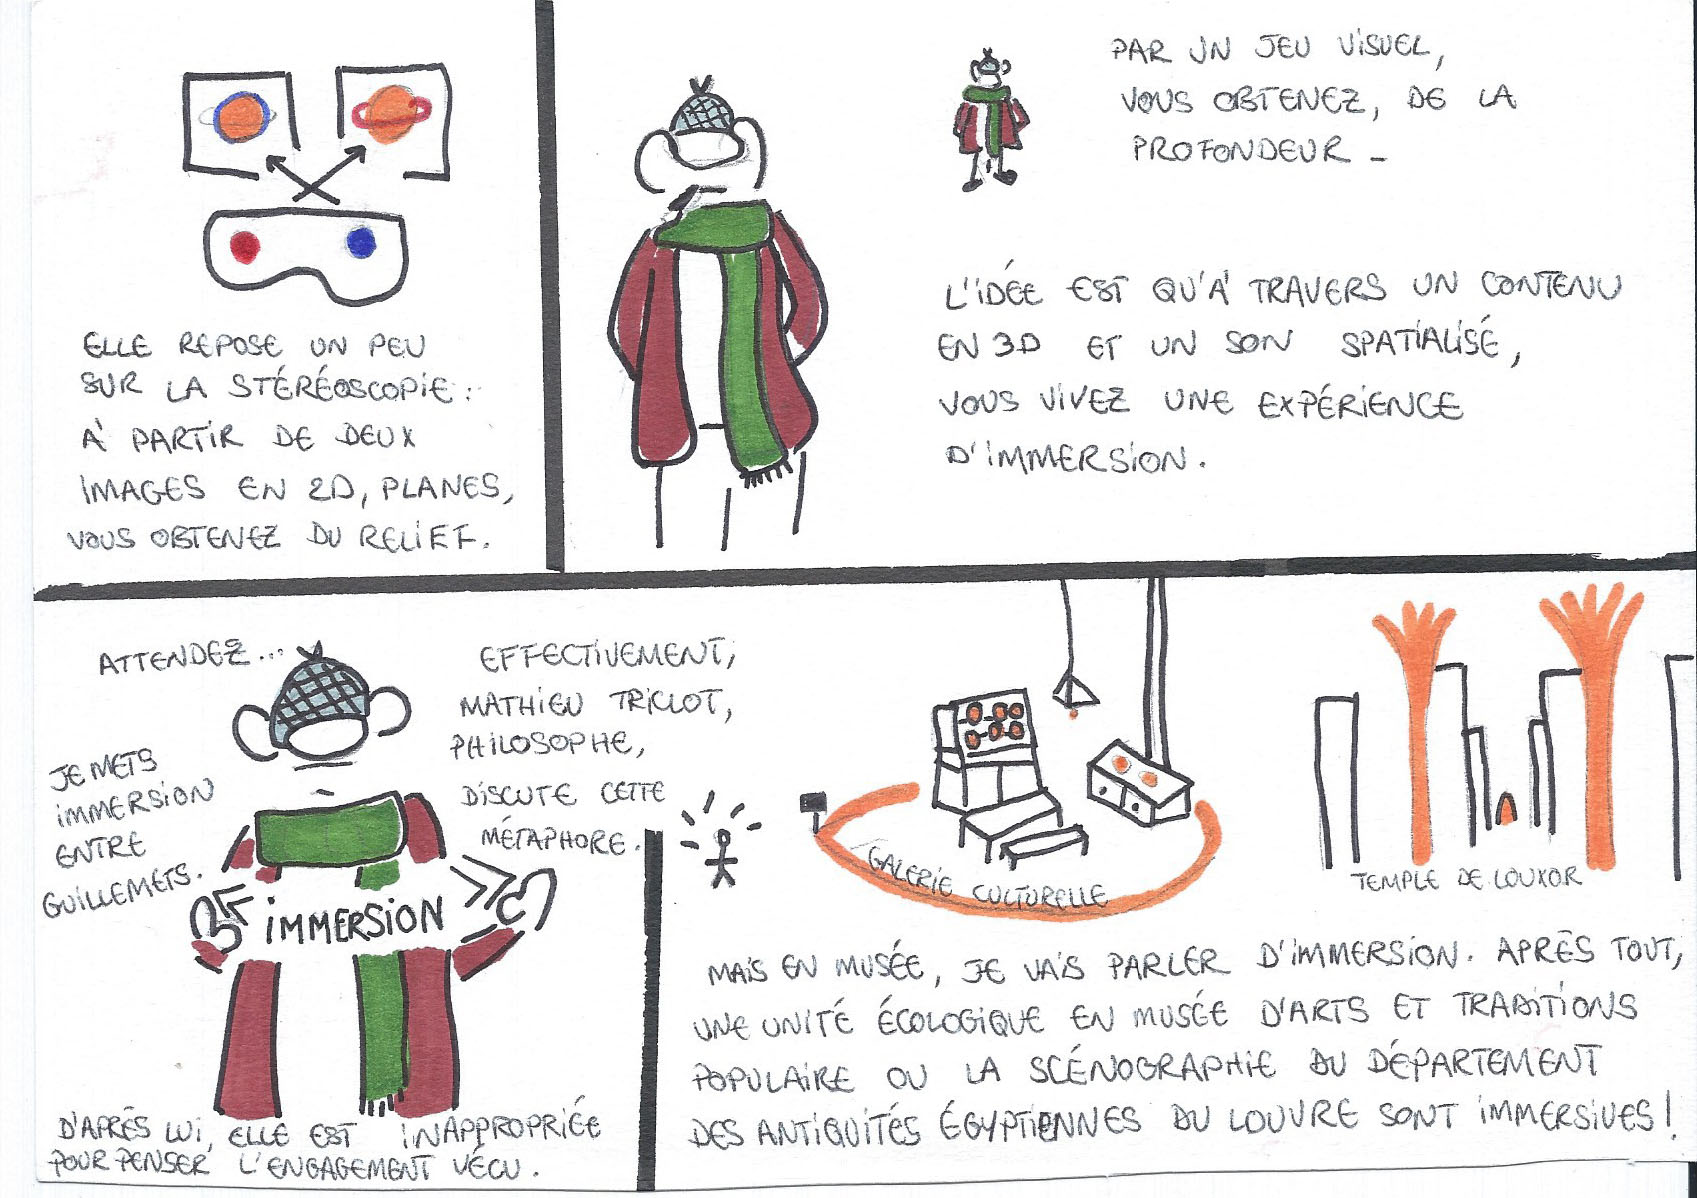 ELLE REPOSE UN PEU
SUR LA STÉRÉOSCOPIE :
À PARTIR DE DEUX
IMAGES EN 2D, PLANES,
VOUS OBTENEZ DU RELIEF.
PAR UN JEU VISUEL,
VOUS OBTENEZ, DE LA
PROFONDEUR -
L'IDÉE EST QU'À TRAVERS UN CONTENU
EN 3D ET UN SON SPATIALISÉ,
VOUS VIVEZ UNE EXPÉRIENCE
D'IMMERSION.
ATTENDEZ...
JE METS
IMMERSION
ENTRE
GUILLEMETS.
EFFECTIVEMENT,
MATHIEU TRICLOT,
PHILOSOPHE,
DISCUTE CETTE
MÉTAPHORE.
« IMMERSION »
D'APRÈS LUI, ELLE EST INAPPROPRIÉE
POUR PENSER L'ENGAGEMENT VÉCU.
GALERIE CULTURELLE
TEMPLE DE LOUXOR
MAIS EN MUSÉE, JE VAIS PARLER D'IMMERSION. APRÈS TOUT,
UNE UNITÉ ÉCOLOGIQUE EN MUSÉE D'ARTS ET TRADITIONS
POPULAIRE OU LA SCÉNOGRAPHIE DU DÉPARTEMENT
DES ANTIQUITÉS ÉGYPTIENNES DU LOUVRE SONT IMMERSIVES !